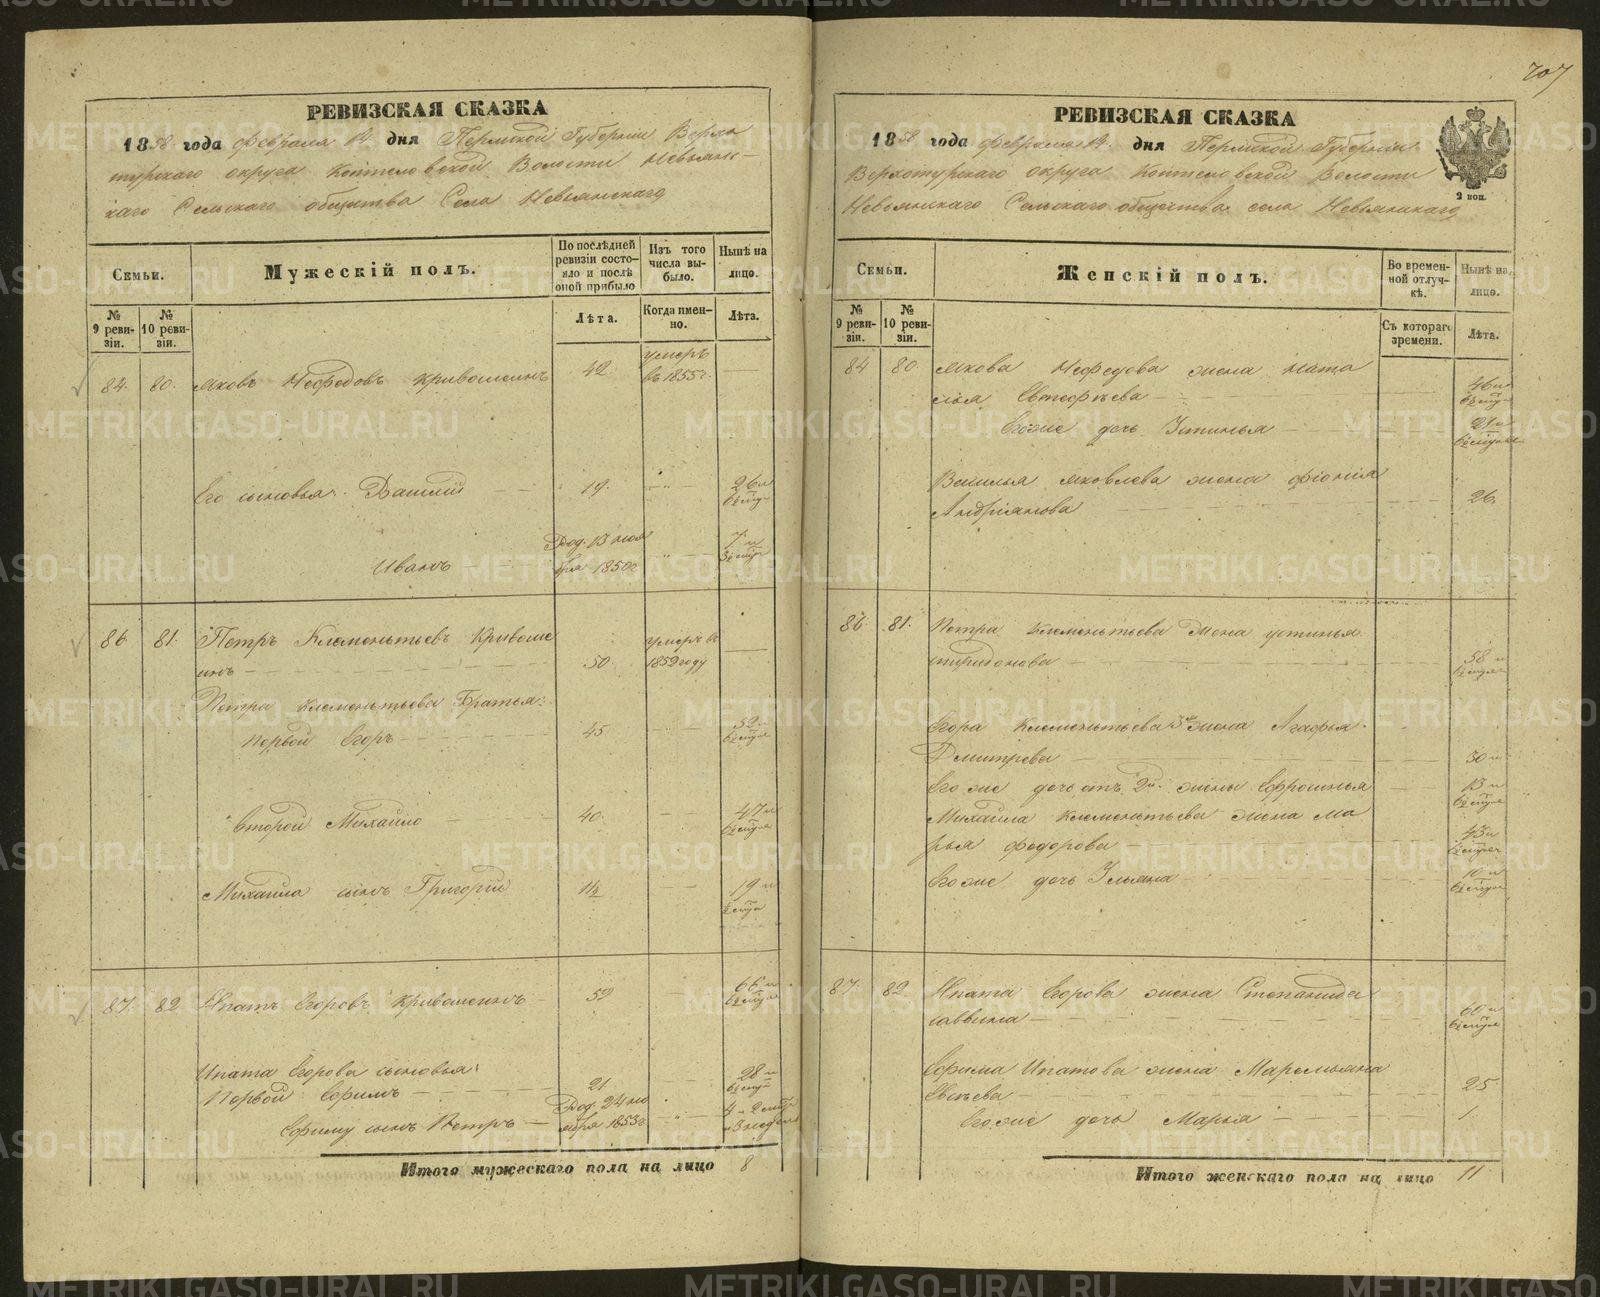 707
РЕВИЗСКАЯ СКАЗКА
1858 года Февраля 14 дня Пермской Губернии Верхо
турскаго округа Коптеловской Волости Невьянс-
каго Сельскаго общества Села Невьянскаго
Семьи.
Мужескій полъ.
По послѣдней ревизіи состояло и послѣ оной прибыло
Изъ того числа выбыло.
Нынѣ на лицо.
№ 9 ревизіи.
№ 10 ревизіи.
Лѣта.
Когда именно.
Лѣта.
84. 80. Яковъ Нефедовъ Кривошеинъ 42 умеръ въ 1855 г.
Его сыновья: Василій 19. 26 и
Иванъ Род. 13 ноя бря 1850 г 7 и
86 81. Петръ Клементьевъ Кривоше
инъ 50 умеръ въ 1852 году
Петра Клементьева Братья:
Первой Егоръ 45 52 и
Второй Михайло 40. 47 и
Михайла сынъ Григорій 11½ 19 и
87. 82 Ипатъ Егоровъ Кривошеинъ 59 66 и
Ипата Егорова сыновья:
Первой Ефимъ 21 28 и
Ефиму сынъ Петръ Род. 24 но ября 1853 г
Итого мужескаго пола на лицо 8
РЕВИЗСКАЯ СКАЗКА
1858 года Февраля 14. дня Пермской Губерніи
Верхотурскаго округа Коптеловской Волости
Невьянскаго Сельскаго общества села Невьянскаго
2 коп.
Семьи.
Женскій полъ.
Во временной отлучкѣ.
Нынѣ на лицо.
№ 9 ревизіи.
№ 10 ревизіи.
Съ котораго времени.
Лѣта.
84 80 Якова Нефедова жена Ната
лья 46 и
Его же дочь Устинья 21 и
Василья Яковлева жена Фіонія
Андріянова 26.
86 81. Петра Клементьева Жена Устинья
Спиридонова 58 и
Егора Клементьева 3я жена Агафья
Дмитрева 30 и
Его же дочь отъ 2й. жены Ефросинья 13 и
Михайла Клементьева жена Ма
рья Федорова 43 и
Его же дочь Ульяна 10 и
87 82 Ипата Егорова жена Степанида
Саввина 60 и
Ефима Ипатова жена Маремьяна
Евсѣева 25
Его же дочь Марья 1.
Итого женскаго пола на лицо 11
METRIKI.GASO-URAL.RU